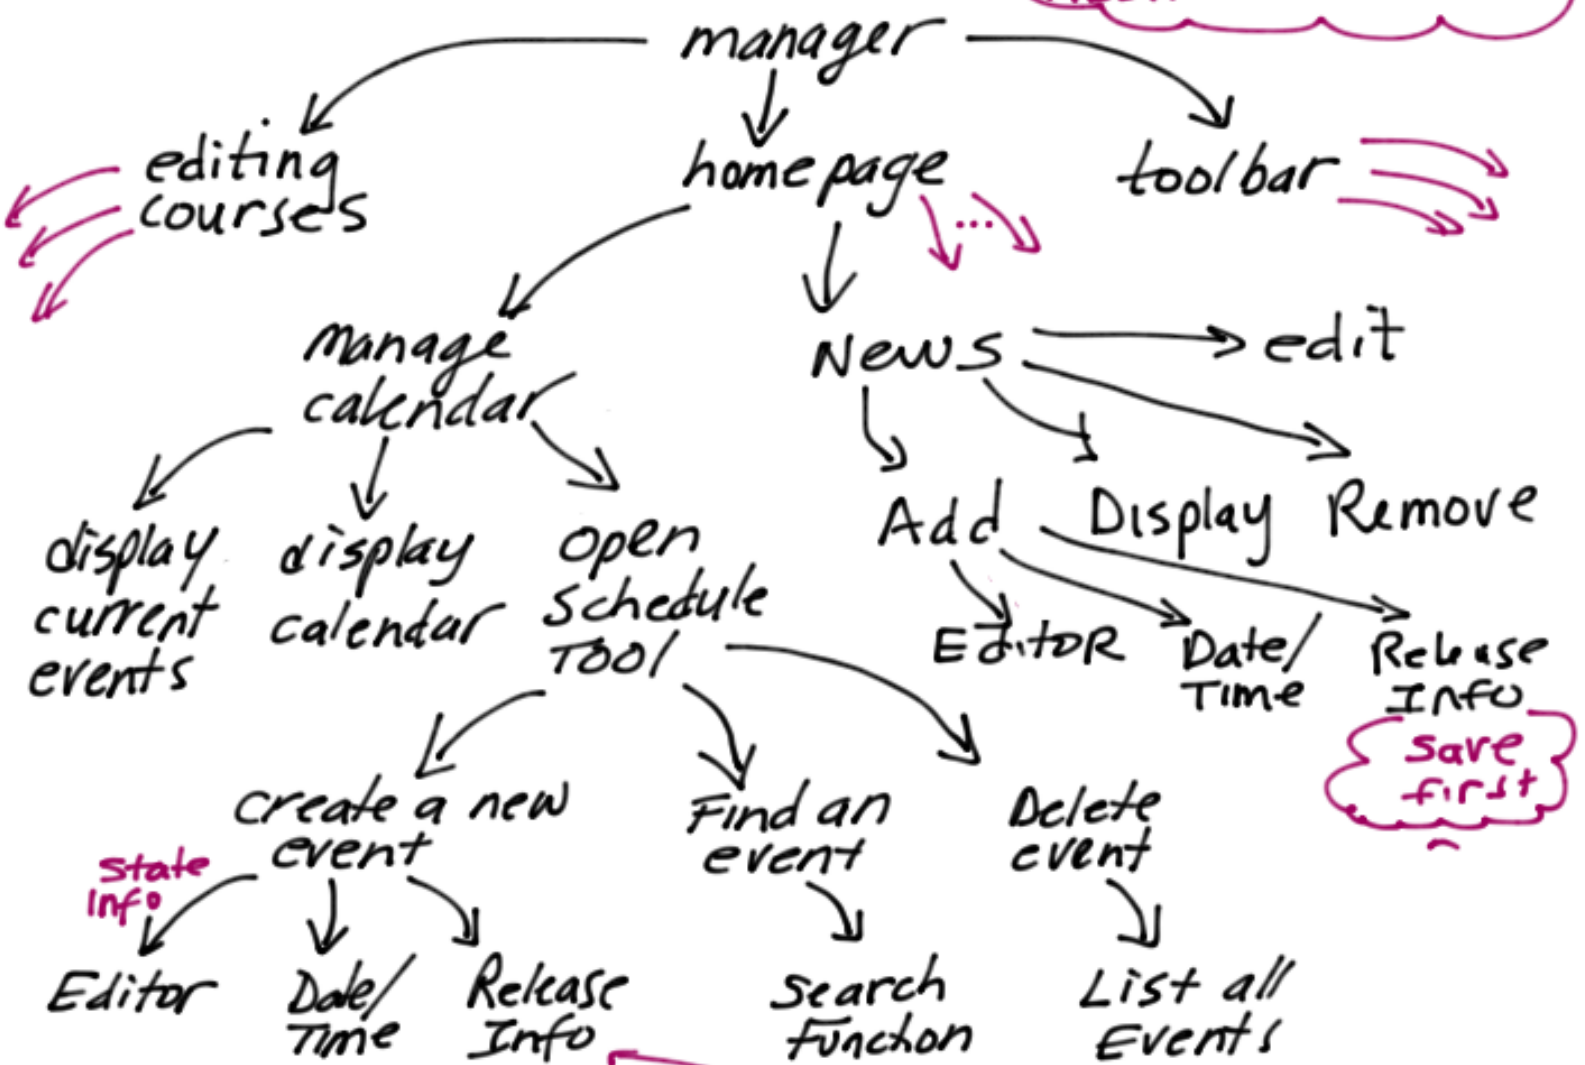 manager
editing
courses
homepage
toolbar
...
manage
calendar
News
edit
Add
Display
Remove
display
current
events
display
calendar
open
schedule
TOOl
EditoR
Date/
Time
Release
Info
save
first
create a new
event
Find an
event
Delete
event
State
Info
Editor
Date/
Time
Release
Info
Search
Function
List all
Events